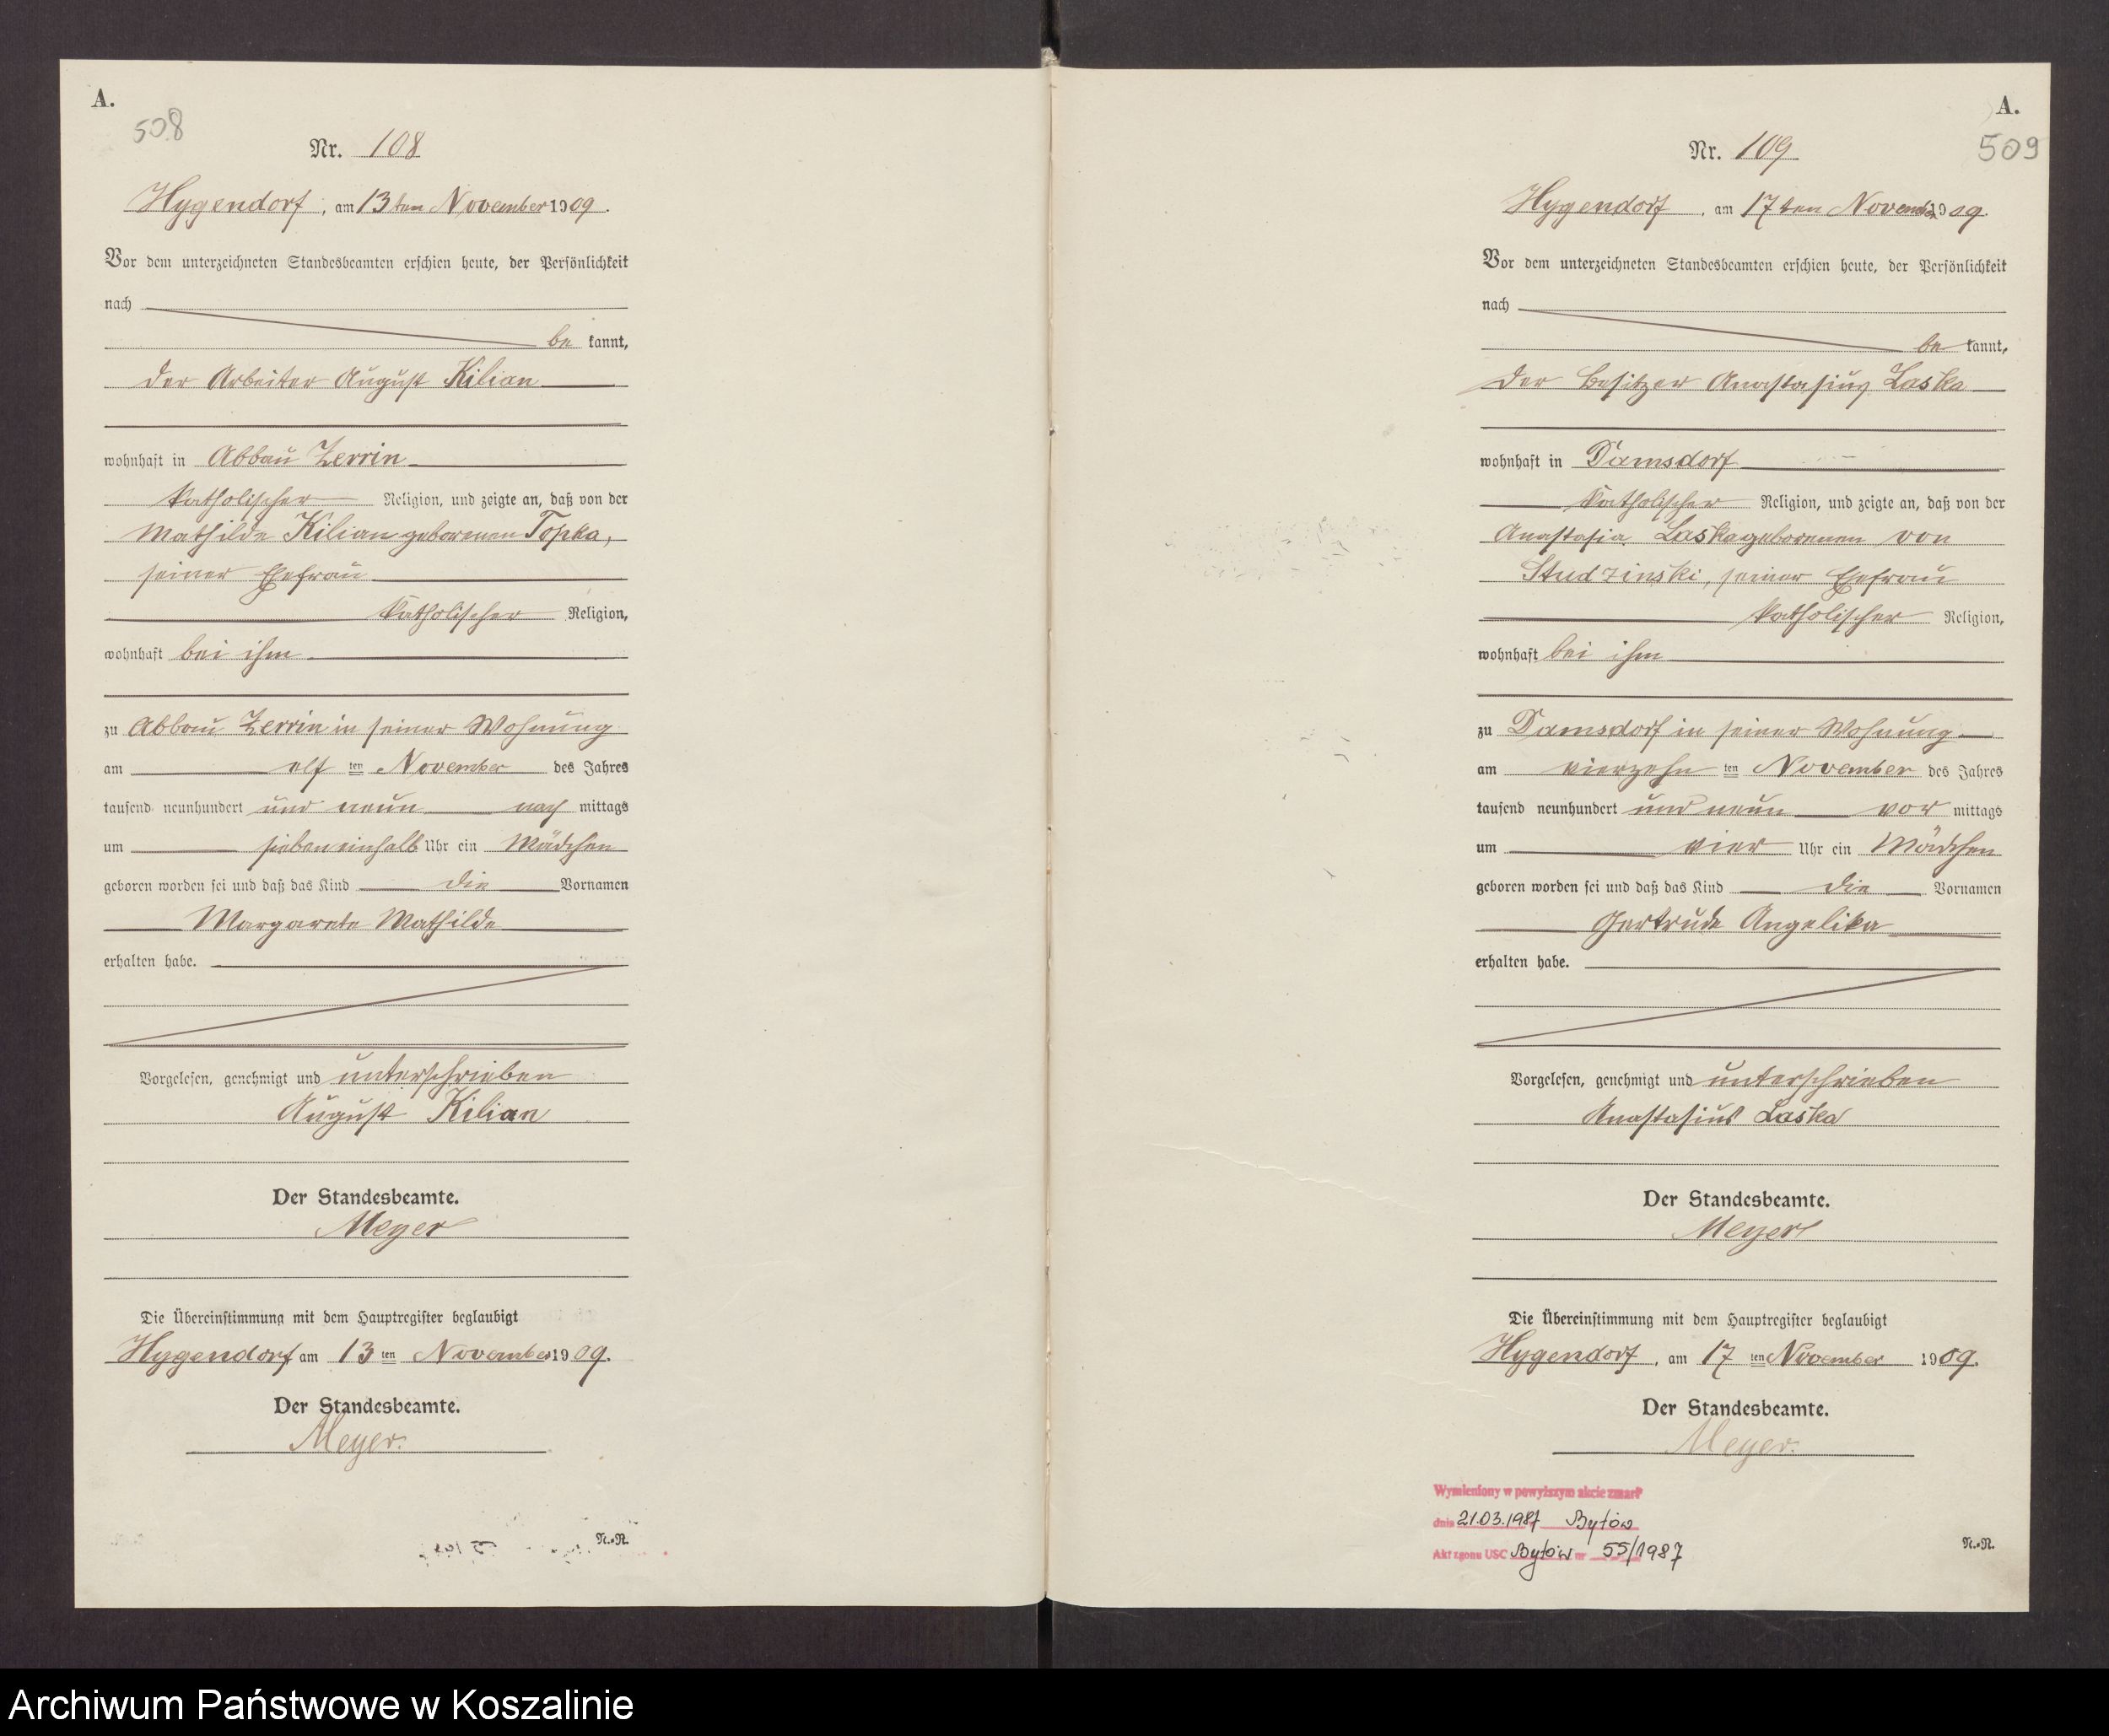 A.
508
Nr. 108
Hygendorf, am 13ten November 1909.
Vor dem unterzeichneten Standesbeamten erschien heute, der Persönlichkeit
nach
be kannt,
der Arbeiter August Kilian
wohnhaft in Abbau Zerrin
katholischer Religion, und zeigte an, daß von der
Mathilde Kilian geborenen Topka,
seiner Ehefrau
katholischer Religion,
wohnhaft bei ihm
zu Abbau Zerrin in seiner Wohnung
am elf ten November des Jahres
tausend neunhundert und neun nach mittags
um siebeneinhalb Uhr ein Mädchen
geboren worden sei und daß das Kind die Vornamen
Margarete Mathilde
erhalten habe.
Vorgelesen, genehmigt und unterschrieben
August Kilian
Der Standesbeamte.
Meyer
Die Übereinstimmung mit dem Hauptregister beglaubigt
Hygendorf am 13 ten November 1909.
Der Standesbeamte.
Meyer.
N.-N.
A.
509
Nr. 109
Hygendorf, am 17ten November 1909.
Vor dem unterzeichneten Standesbeamten erschien heute, der Persönlichkeit
nach
be kannt,
der Besitzer Anastasius Laska
wohnhaft in Damsdorf
katholischer Religion, und zeigte an, daß von der
Anastasia Laska geborenen von
Studzinski, seiner Ehefrau
katholischer Religion,
wohnhaft bei ihm
zu Damsdorf in seiner Wohnung
am vierzehn ten November des Jahres
tausend neunhundert und neun vor mittags
um vier Uhr ein Mädchen
geboren worden sei und daß das Kind die Vornamen
Gertrude Angelika
erhalten habe.
Vorgelesen, genehmigt und unterschrieben
Anastasius Laska
Der Standesbeamte.
Meyer
Die Übereinstimmung mit dem Hauptregister beglaubigt
Hygendorf, am 17 ten November 1909.
Der Standesbeamte.
Meyer.
Wymieniony w powyższym akcie zmarł
dnia 21.03.1987 Bytów
Akt zgonu USC Bytów nr 55/1987
N.-N.
Archiwum Państwowe w Koszalinie